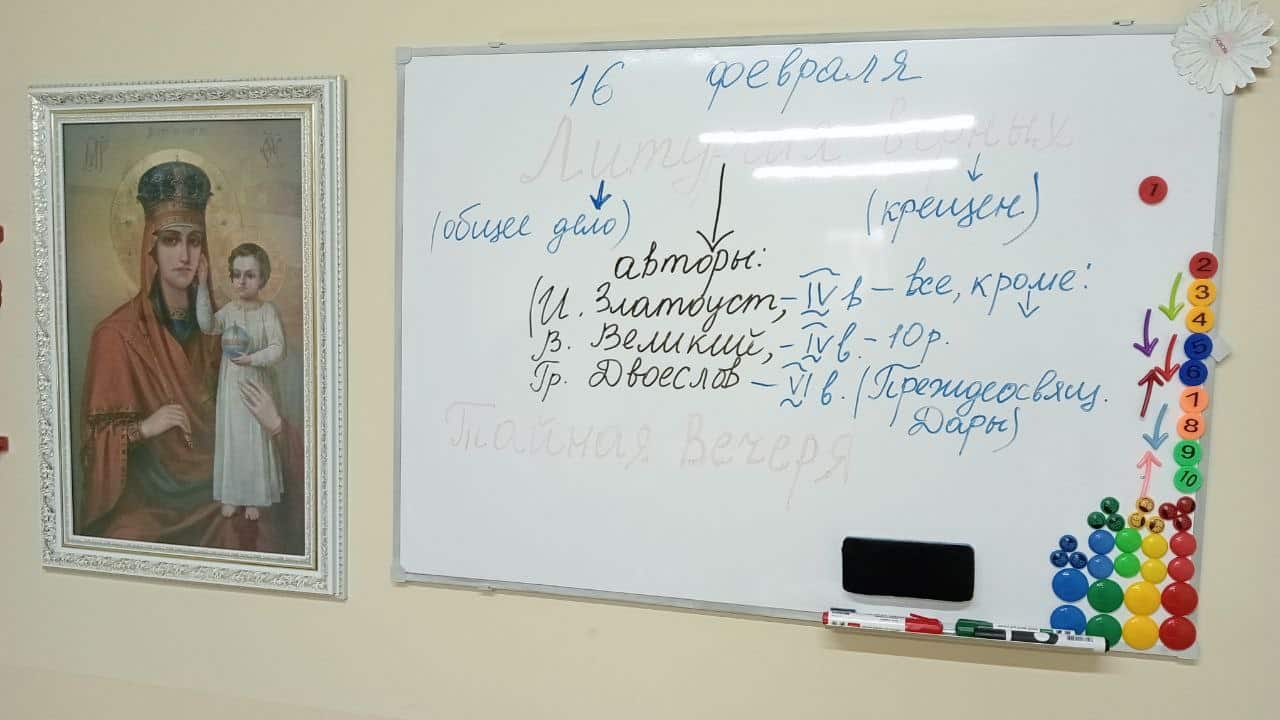 16 февраля
Литургия верных
(общее дело)
(крещен)
авторы:
(И. Златоуст, - IV в - все, кроме:
В. Великий, - IV в. - 10 р.
Гр. Двоеслов - VI в. (Преждеосвящ.
Дары)
Тайная Вечеря
1
2
3
4
5
6
7
8
9
10